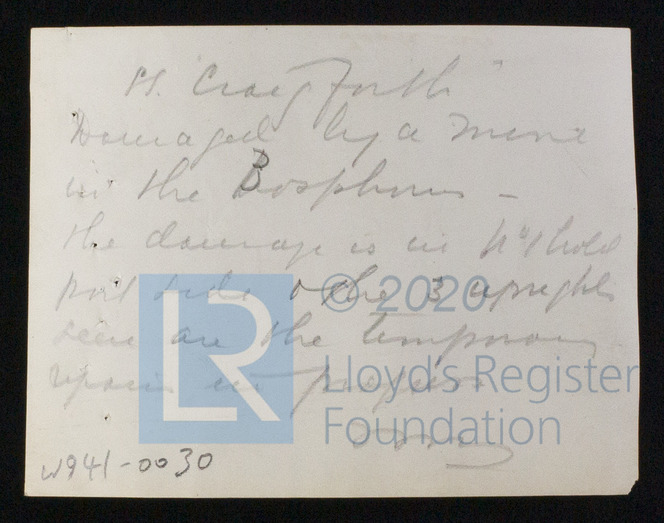 SS. "Craigforth"
Damaged by a mine
in the Bosphorus –
the damage is in No 1 hold
port side & the 3 uprights
seen are the temporary
repairs in progress
© 2020
LR
Lloyd's Register
Foundation
W941-0030